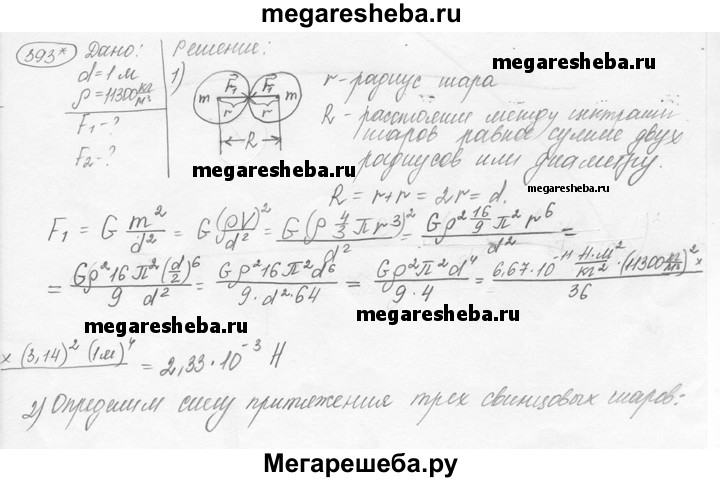 megaresheba.ru
393* Дано: Решение:
d = 1 м
ρ = 11300 кг/м³
F₁ - ?
F₂ - ?
1) m F₁ F₁ m
r r
R
r - радиус шара
R - расстояние между центрами
шаров равно сумме двух
радиусов или диаметру.
megaresheba.ru
megaresheba.ru
R = r + r = 2r = d.
F₁ = G m²/d² = G (ρV)²/d² = G(ρ 4/3 π r³)²/d² = Gρ² 16/9 π² r⁶/d² =
= Gρ² 16 π² (d/2)⁶/9 d² = Gρ² 16 π² d⁶/9·d²·64 = Gρ² π² d⁴/9·4 = 6,67·10⁻¹¹ Н·м²/кг² · (11300 кг/м³)² ×/36
megaresheba.ru
megaresheba.ru
× (3,14)² (1м)⁴ = 2,33·10⁻³ Н
2) Определим силу притяжения трех свинцовых шаров:
Мегарешеба.ру